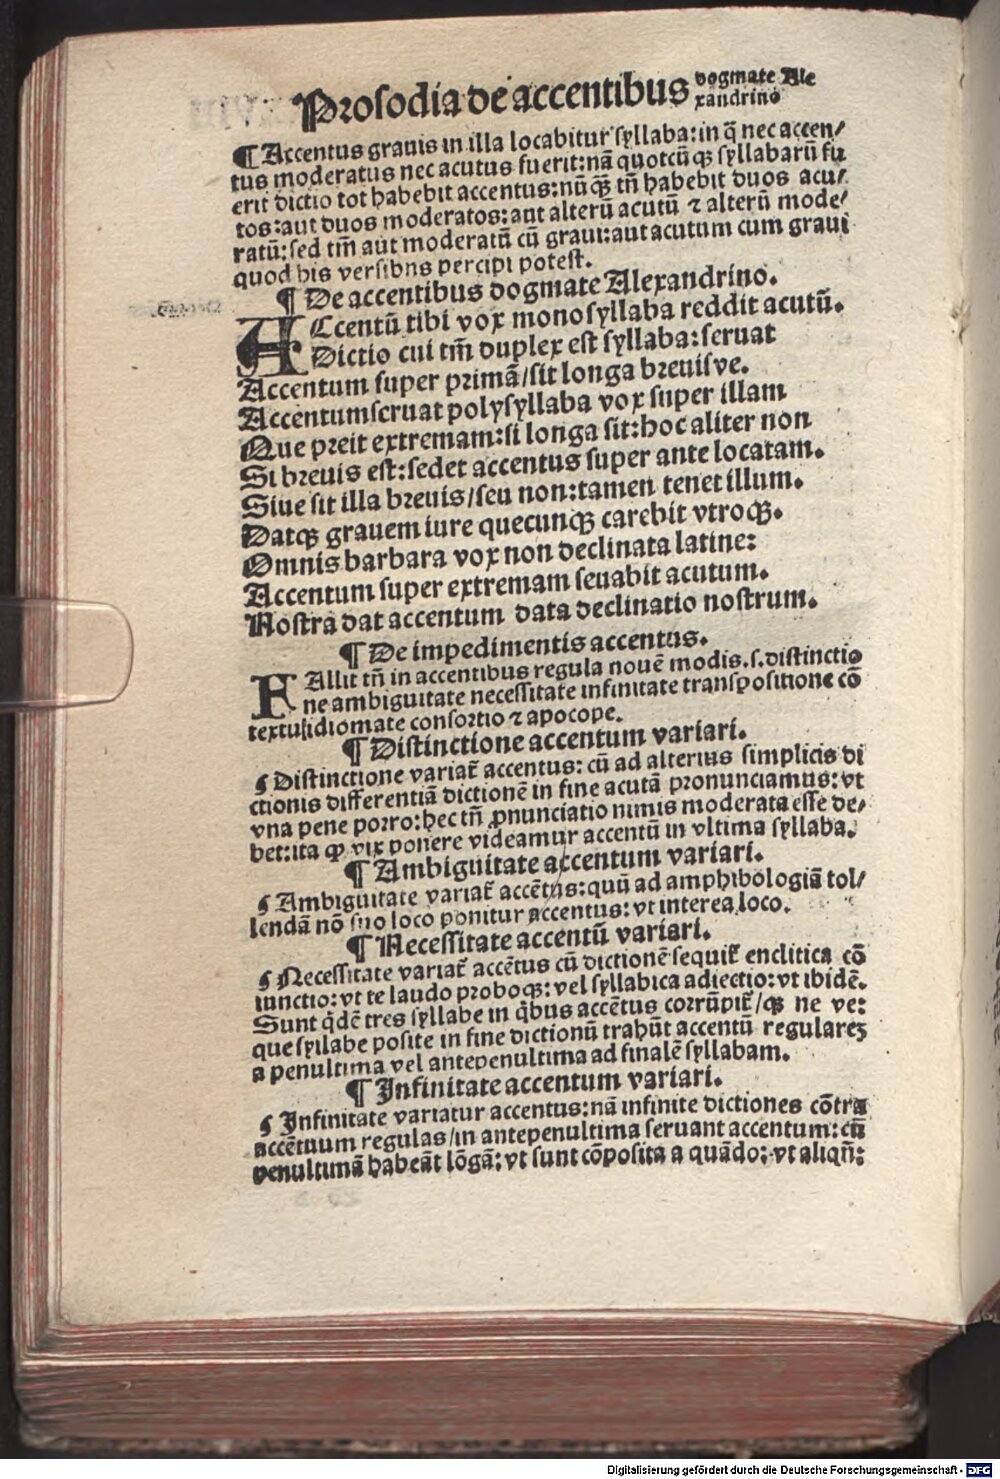 Prosodia de accentibus dogmate Ale
xandrino
¶ Accentus grauis in illa locabitur syllaba: in q̄ nec accen/
tus moderatus nec acutus fuerit: nā quotcūqꝫ syllabarū fu
erit dictio tot habebit accentus: nūqꝫ̄ tñ habebit duos acu/
tos: aut duos moderatos: aut alterū acutū ⁊ alterū mode/
ratū: sed tm̄ aut moderatū cū graui: aut acutum cum graui
quod his versibns percipi potest.
¶ De accentibus dogmate Alexandrino.
ACcentū tibi vox monosyllaba reddit acutū.
Dictio cui tm̄ duplex est syllaba: seruat
Accentum super primā/sit longa breuisve.
Accentumseruat polysyllaba vox super illam
Que preit extremam: si longa sit: hoc aliter non
Si breuis est: sedet accentus super ante locatam.
Siue sit illa breuis/seu non: tamen tenet illum.
Datqꝫ grauem iure quecunqꝫ carebit vtroqꝫ.
Omnis barbara vox non declinata latine:
Accentum super extremam seuabit acutum.
Nostra dat accentum data declinatio nostrum.
¶ De impedimentis accentus.
FAllit tñ in accentibus regula nouē modis. s. distinctio
ne ambiguitate necessitate infinitate transpositione cō
textu/idiomate consortio ⁊ apocope.
¶ Distinctione accentum variari.
¶ Distinctione variat᷑ accentus: cū ad alterius simplicis di
ctionis differentiā dictionē in fine acutā pronunciamus: vt
vna pene porro: hec tñ ꝓnunciatio nimis moderata esse de/
bet: ita ꝙ vix ponere videamur accentū in vltima syllaba.
¶ Ambiguitate accentum variari.
¶ Ambiguitate variat᷑ accētus: quū ad amphibologiā tol/
lendā nō suo loco ponitur accentus: vt interea loco.
¶ Necessitate accentū variari.
¶ Necessitate variat᷑ accētus cū dictionē sequit᷑ enclitica cō
iunctio: vt te laudo proboqꝫ: vel syllabica adiectio: vt ibidē.
Sunt q̇dē tres syllabe in q̇bus accētus corrūpit᷑/qꝫ ne ve:
que syllabe posite in fine dictionū trahūt accentū regulareꝫ
a penultima vel antepenultima ad finalē syllabam.
¶ Infinitate accentum variari.
¶ Infinitate variatur accentus: nā infinite dictiones cōtra
accētuum regulas/in antepenultima seruant accentum: cū
penultimā habeāt lōgā: vt sunt cōposita a quādo: vt aliqñ:
Digitalisierung gefördert durch die Deutsche Forschungsgemeinschaft - DFG